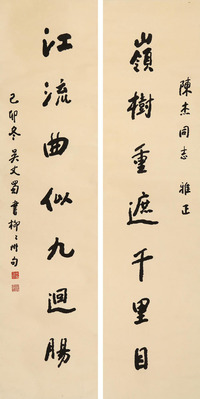 陳杰同志雅正
嶺樹重遮千里目
江流曲似九迴腸
己卯冬吳丈蜀書柳柳州句